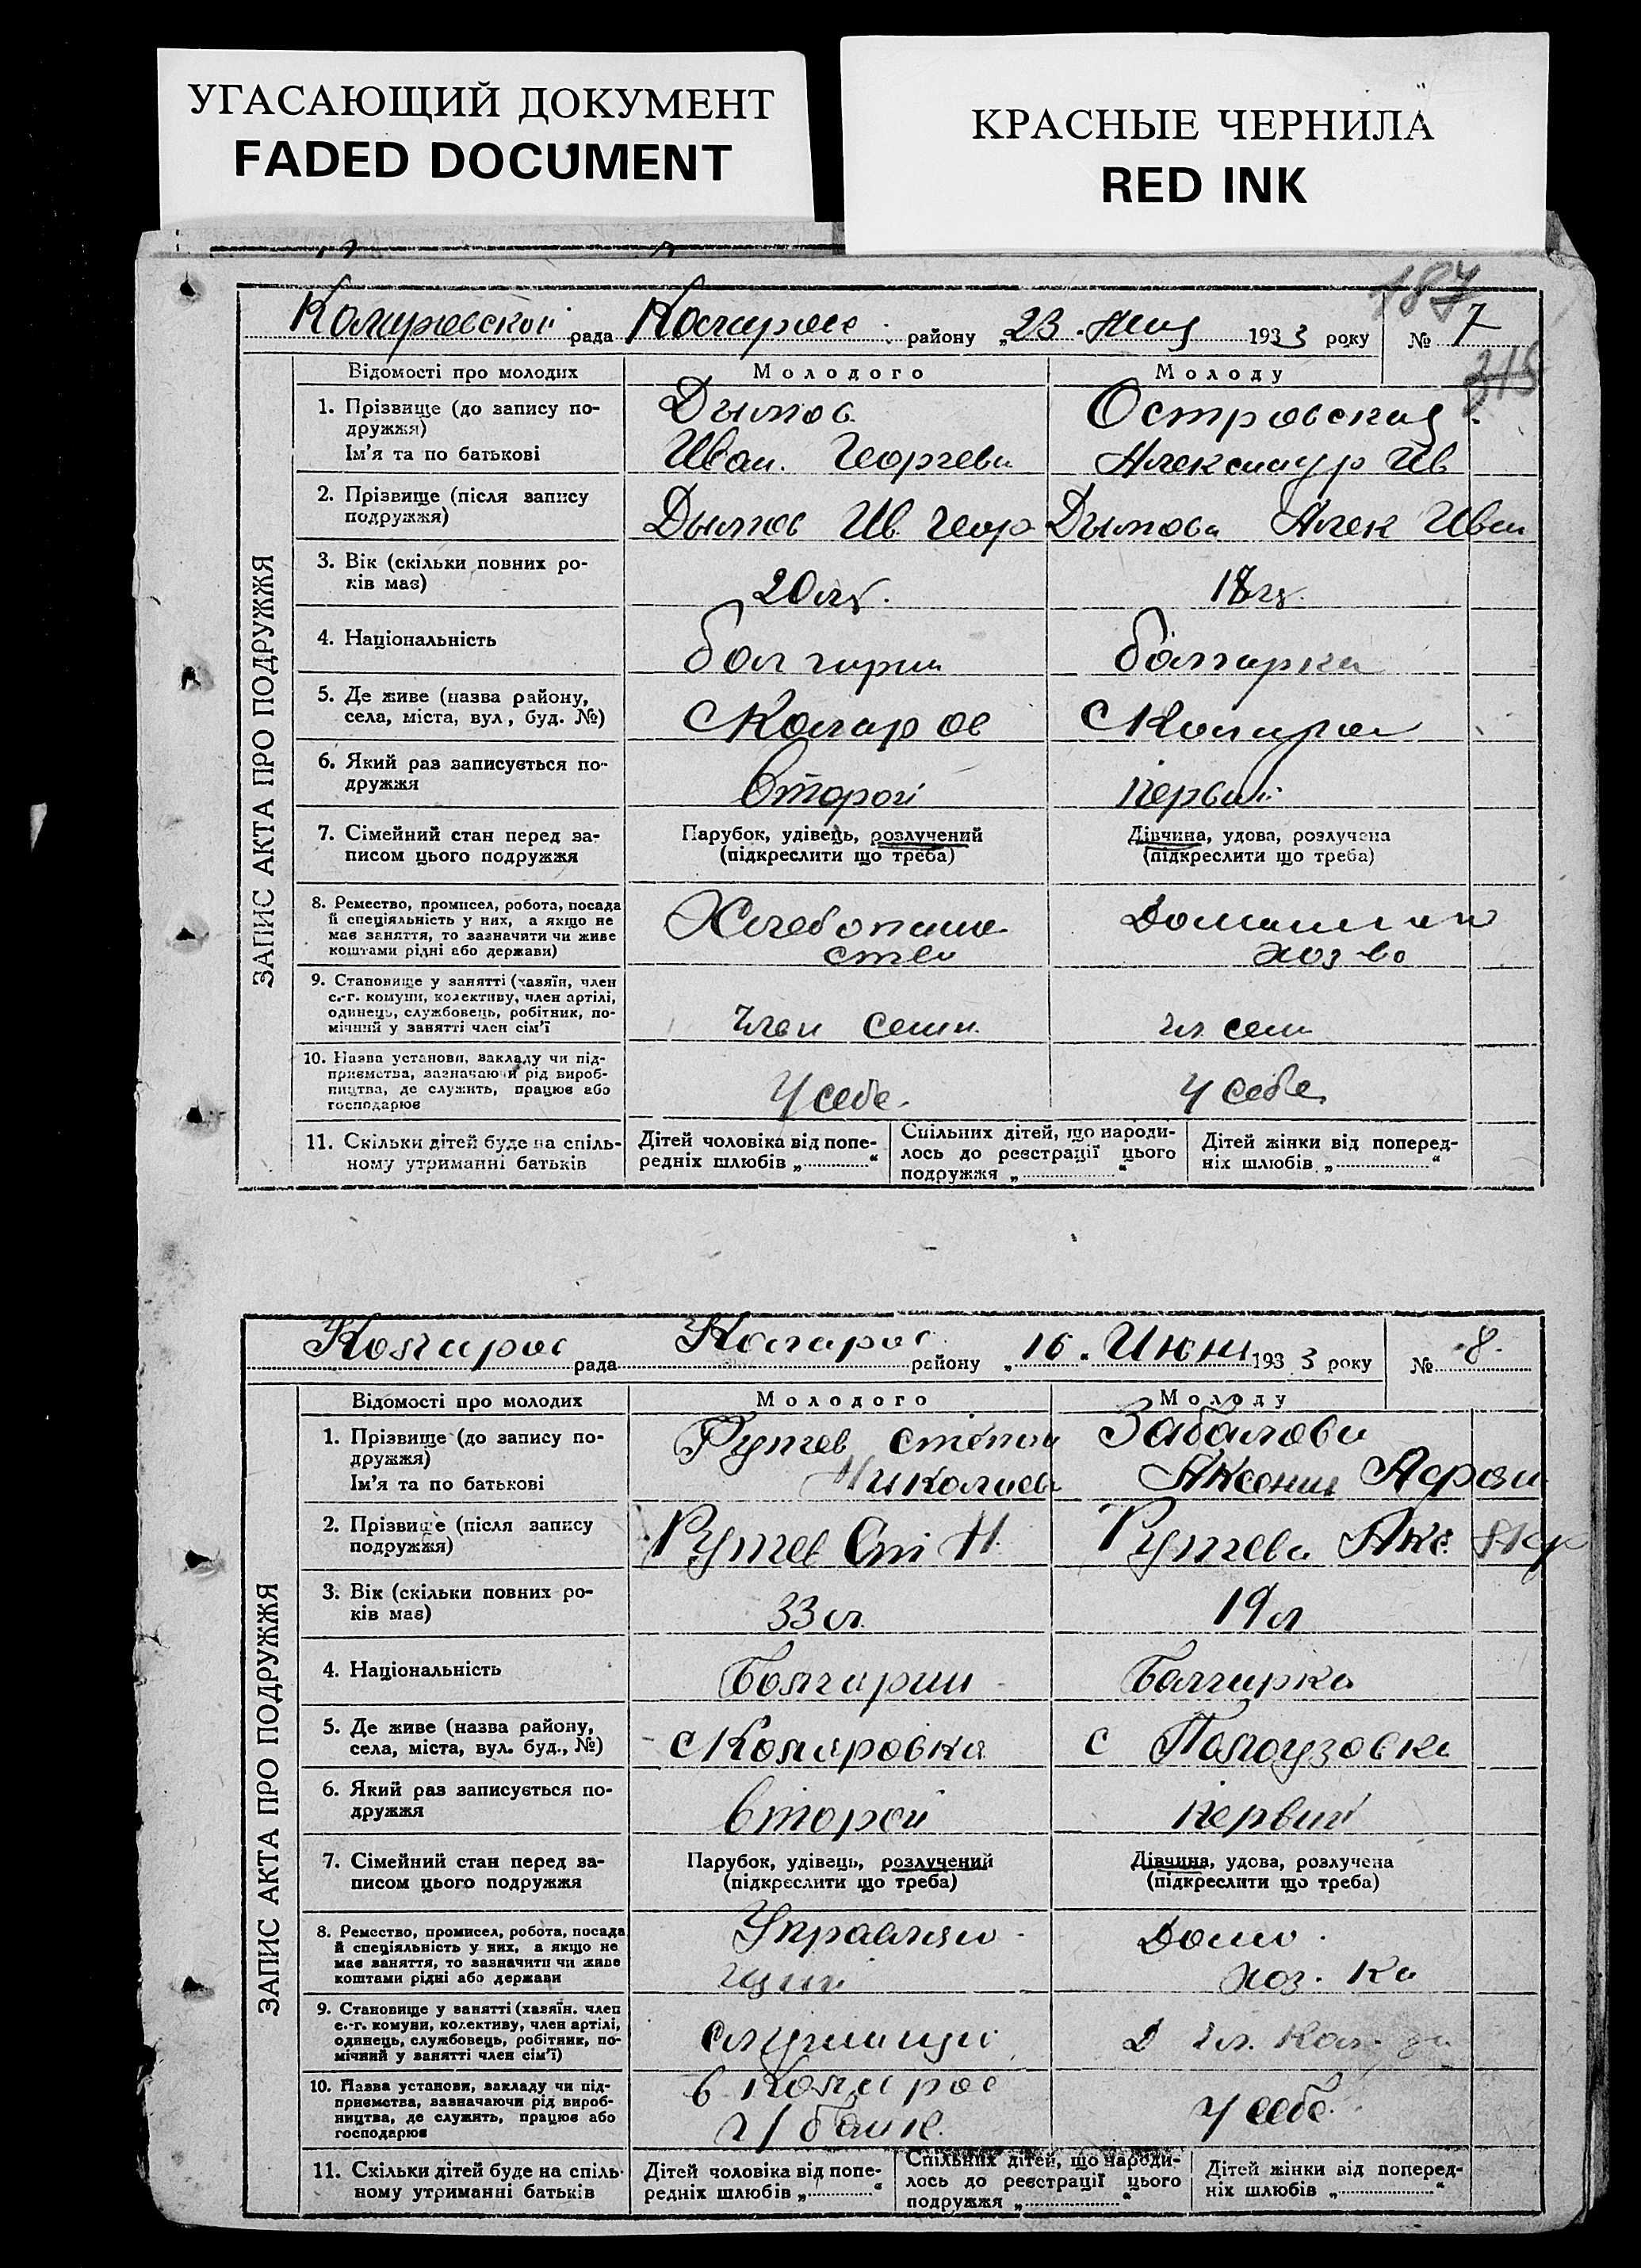 УГАСАЮЩИЙ ДОКУМЕНТ
FADED DOCUMENT
КРАСНЫЕ ЧЕРНИЛА
RED INK
187
Коларовской рада Коларов району „23. 1933 року № 7
315
ЗАПИС АКТА ПРО ПОДРУЖЖЯ
Відомості про молодих Молодого Молоду
1. Прізвище (до запису по-
дружжя)
Ім'я та по батькові
Дымов
Иван. Георгеви
Островская
Александр Ив
2. Прізвище (після запису
подружжя)
Дымов Ив. Геор Дымова Алек Иван
3. Вік (скільки повних ро-
ків має)
20 18
4. Національність
болгарин болгарка
5. Де живе (назва району,
села, міста, вул, буд. №)
С Коларов С Коларов
6. Який раз записується по-
дружжя
Второй первый
7. Сімейний стан перед за-
писом цього подружжя
Парубок, удівець, розлучений
(підкреслити що треба)
Дівчина, удова, розлучена
(підкреслити що треба)
8. Ремество, промисел, робота, посада
й спеціяльність у них, а якщо не
має заняття, то зазначити чи живе
коштами рідні або держави)
Хлебопаше
ство
Домашнии
хоз-во
9. Становище у занятті (хазяїн, член
с.-г. комуни, колективу, член артілі,
одинець, службовець, робітник, по-
мічний у занятті член сім'ї
Член семи чл. сем
10. Назва установи, закладу чи під-
приємства, зазначаючи рід вироб-
ництва, де служить, працює або
господарює
У себе. У себе.
11. Скільки дітей буде на спіль-
ному утриманні батьків
Дітей чоловіка від попе-
редніх шлюбів „ “
Спільних дітей, що народи-
лось до реєстрації цього
подружжя „ “
Дітей жінки від поперед-
ніх шлюбів „ “
Коларов рада Коларов району „16. Июня 1933 року № 8.
ЗАПИС АКТА ПРО ПОДРУЖЖЯ
Відомості про молодих Молодого Молоду
1. Прізвище (до запису по-
дружжя)
Ім'я та по батькові
Рунтев Степан
Николаев
Забалова
Аксения
2. Прізвище (після запису
подружжя)
Рунтев Ст Н. Рунтева Акс.
3. Вік (скільки повних ро-
ків має)
33 л. 19 л
4. Національність
Болгарин Болгарка
5. Де живе (назва району,
села, міста, вул. буд., №)
с Коларовка с Палоузовка
6. Який раз записується по-
дружжя
второй первый
7. Сімейний стан перед за-
писом цього подружжя
Парубок, удівець, розлучений
(підкреслити що треба)
Дівчина, удова, розлучена
(підкреслити що треба)
8. Ремество, промисел, робота, посада
й спеціяльність у них, а якщо не
має заняття, то зазначити чи живе
коштами рідні або держави
Управляю-
щий
Домо.
хоз. ка
9. Становище у занятті (хазяїн. член
с.-г. комуни, колективу, член артілі,
одинець, службовець, робітник, по-
мічний у занятті член сім'ї)
служащи чл. кол.
10. Назва установи, закладу чи під-
приємства, зазначаючи рід вироб-
ництва, де служить, працює або
господарює
в Коларов
г/банк.
У себе.
11. Скільки дітей буде на спіль-
ному утриманні батьків
Дітей чоловіка від попе-
редніх шлюбів „ “
Спільних дітей, що народи-
лось до реєстрації цього
подружжя „ “
Дітей жінки від поперед-
ніх шлюбів „ “